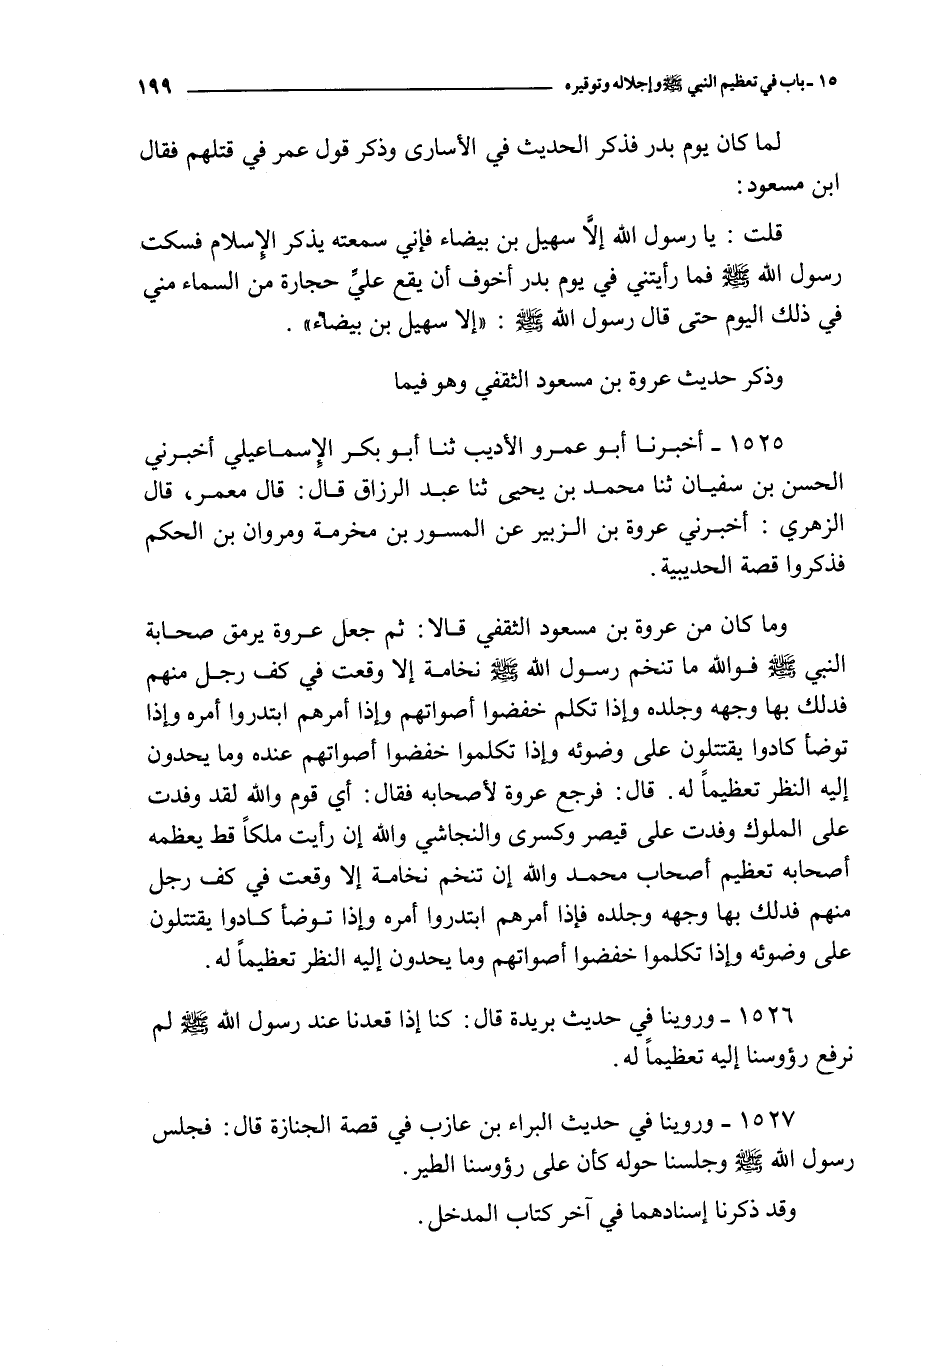 ١٥ - باب في تعظيم النبي ﷺ وإجلاله وتوقيره ١٩٩
لما كان يوم بدر فذكر الحديث في الأسارى وذكر قول عمر في قتلهم فقال
ابن مسعود :
قلت : يا رسول الله إلاَّ سهيل بن بيضاء فإني سمعته يذكر الإِسلام فسكت
رسول الله ﷺ فما رأيتني في يوم بدر أخوف أن يقع عليَّ حجارة من السماء مني
في ذلك اليوم حتى قال رسول الله ﷺ : «إلا سهيل بن بيضاء» .
وذكر حديث عروة بن مسعود الثقفي وهو فيما
١٥٢٥ - أخبرنا أبو عمرو الأديب ثنا أبو بكر الإِسماعيلي أخبرني
الحسن بن سفيان ثنا محمد بن يحيى ثنا عبد الرزاق قال : قال معمر، قال
الزهري : أخبرني عروة بن الزبير عن المسور بن مخرمة ومروان بن الحكم
فذكروا قصة الحديبية .
وما كان من عروة بن مسعود الثقفي قالا : ثم جعل عروة يرمق صحابة
النبي ﷺ فوالله ما تنخم رسول الله ﷺ نخامة إلا وقعت في كف رجل منهم
فدلك بها وجهه وجلده وإذا تكلم خفضوا أصواتهم وإذا أمرهم ابتدروا أمره وإذا
توضأ كادوا يقتتلون على وضوئه وإذا تكلموا خفضوا أصواتهم عنده وما يحدون
إليه النظر تعظيماً له . قال : فرجع عروة لأصحابه فقال : أي قوم والله لقد وفدت
على الملوك وفدت على قيصر وكسرى والنجاشي والله إن رأيت ملكاً قط يعظمه
أصحابه تعظيم أصحاب محمد والله إن تنخم نخامة إلا وقعت في كف رجل
منهم فدلك بها وجهه وجلده فإذا أمرهم ابتدروا أمره وإذا توضأ كادوا يقتتلون
على وضوئه وإذا تكلموا خفضوا أصواتهم وما يحدون إليه النظر تعظيماً له .
١٥٢٦ - وروينا في حديث بريدة قال : كنا إذا قعدنا عند رسول الله ﷺ لم
نرفع رؤوسنا إليه تعظيماً له .
١٥٢٧ - وروينا في حديث البراء بن عازب في قصة الجنازة قال : فجلس
رسول الله ﷺ وجلسنا حوله كأن على رؤوسنا الطير .
وقد ذكرنا إسنادهما في آخر كتاب المدخل .